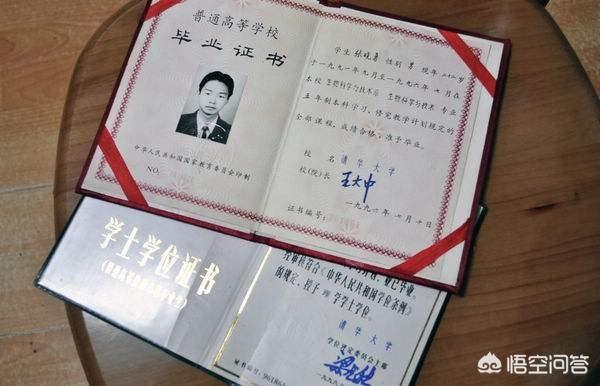 普通高等学校
毕业证书
中华人民共和国国家教育委员会印制
NO.
学生 张晓勇 性别 男 现年 二十二岁
于一九九一年九月至一九九六年七月在
本校 生物科学与技术系 生物科学与技术 专业
五年制本科学习，修完教学计划规定的
全部课程，成绩合格，准予毕业。
校 名 清华大学
校(院)长 王大中
一九九六年七月十日
证书编号：
学士学位证书
经审核符合《中华人民共和国学位条例》
的规定，授予 理 学学士学位。
清华大学
学位评定委员会主席
证书编号：
悟空问答